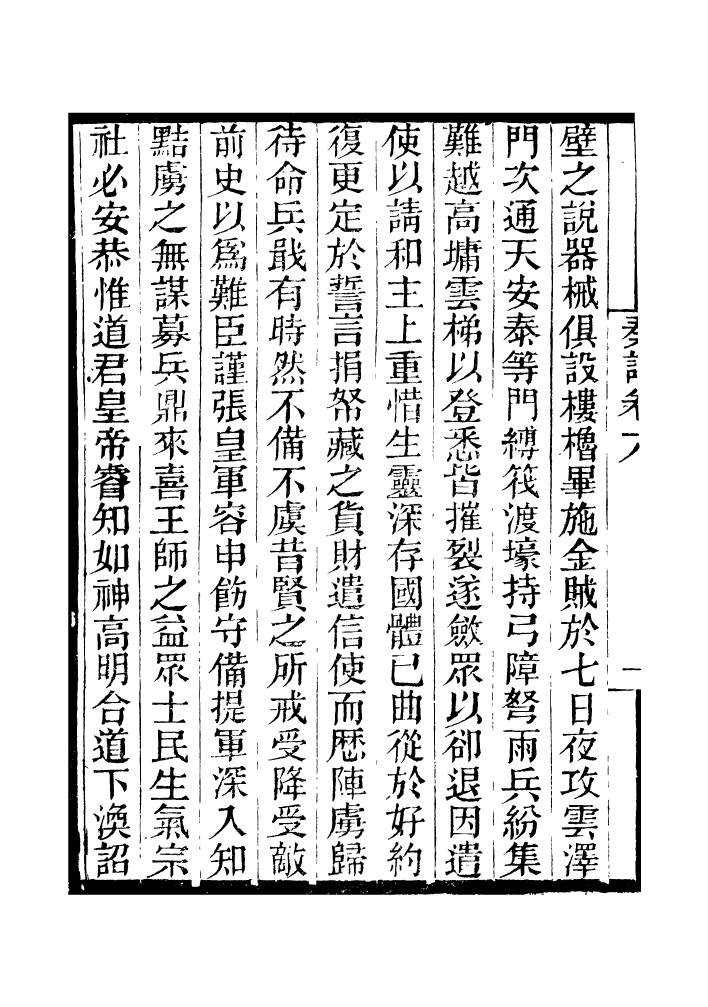 壁之說器械俱設樓櫓畢施金賊於七日夜攻雲澤
門次通天安泰等門縛筏渡壕持弓障弩雨兵紛集
難越高墉雲梯以登悉皆摧裂遂斂眾以卻退因遣
使以請和主上重惜生靈深存國體已曲從於好約
復更定於誓言捐帑藏之貨財遣信使而慰陣虜歸
待命兵戢有時然不備不虞昔賢之所戒受降受敵
前史以爲難臣謹張皇軍容申飭守備提軍深入知
黠虜之無謀募兵鼎來喜王師之益眾士民生氣宗
社必安恭惟道君皇帝睿知如神高明合道下渙詔